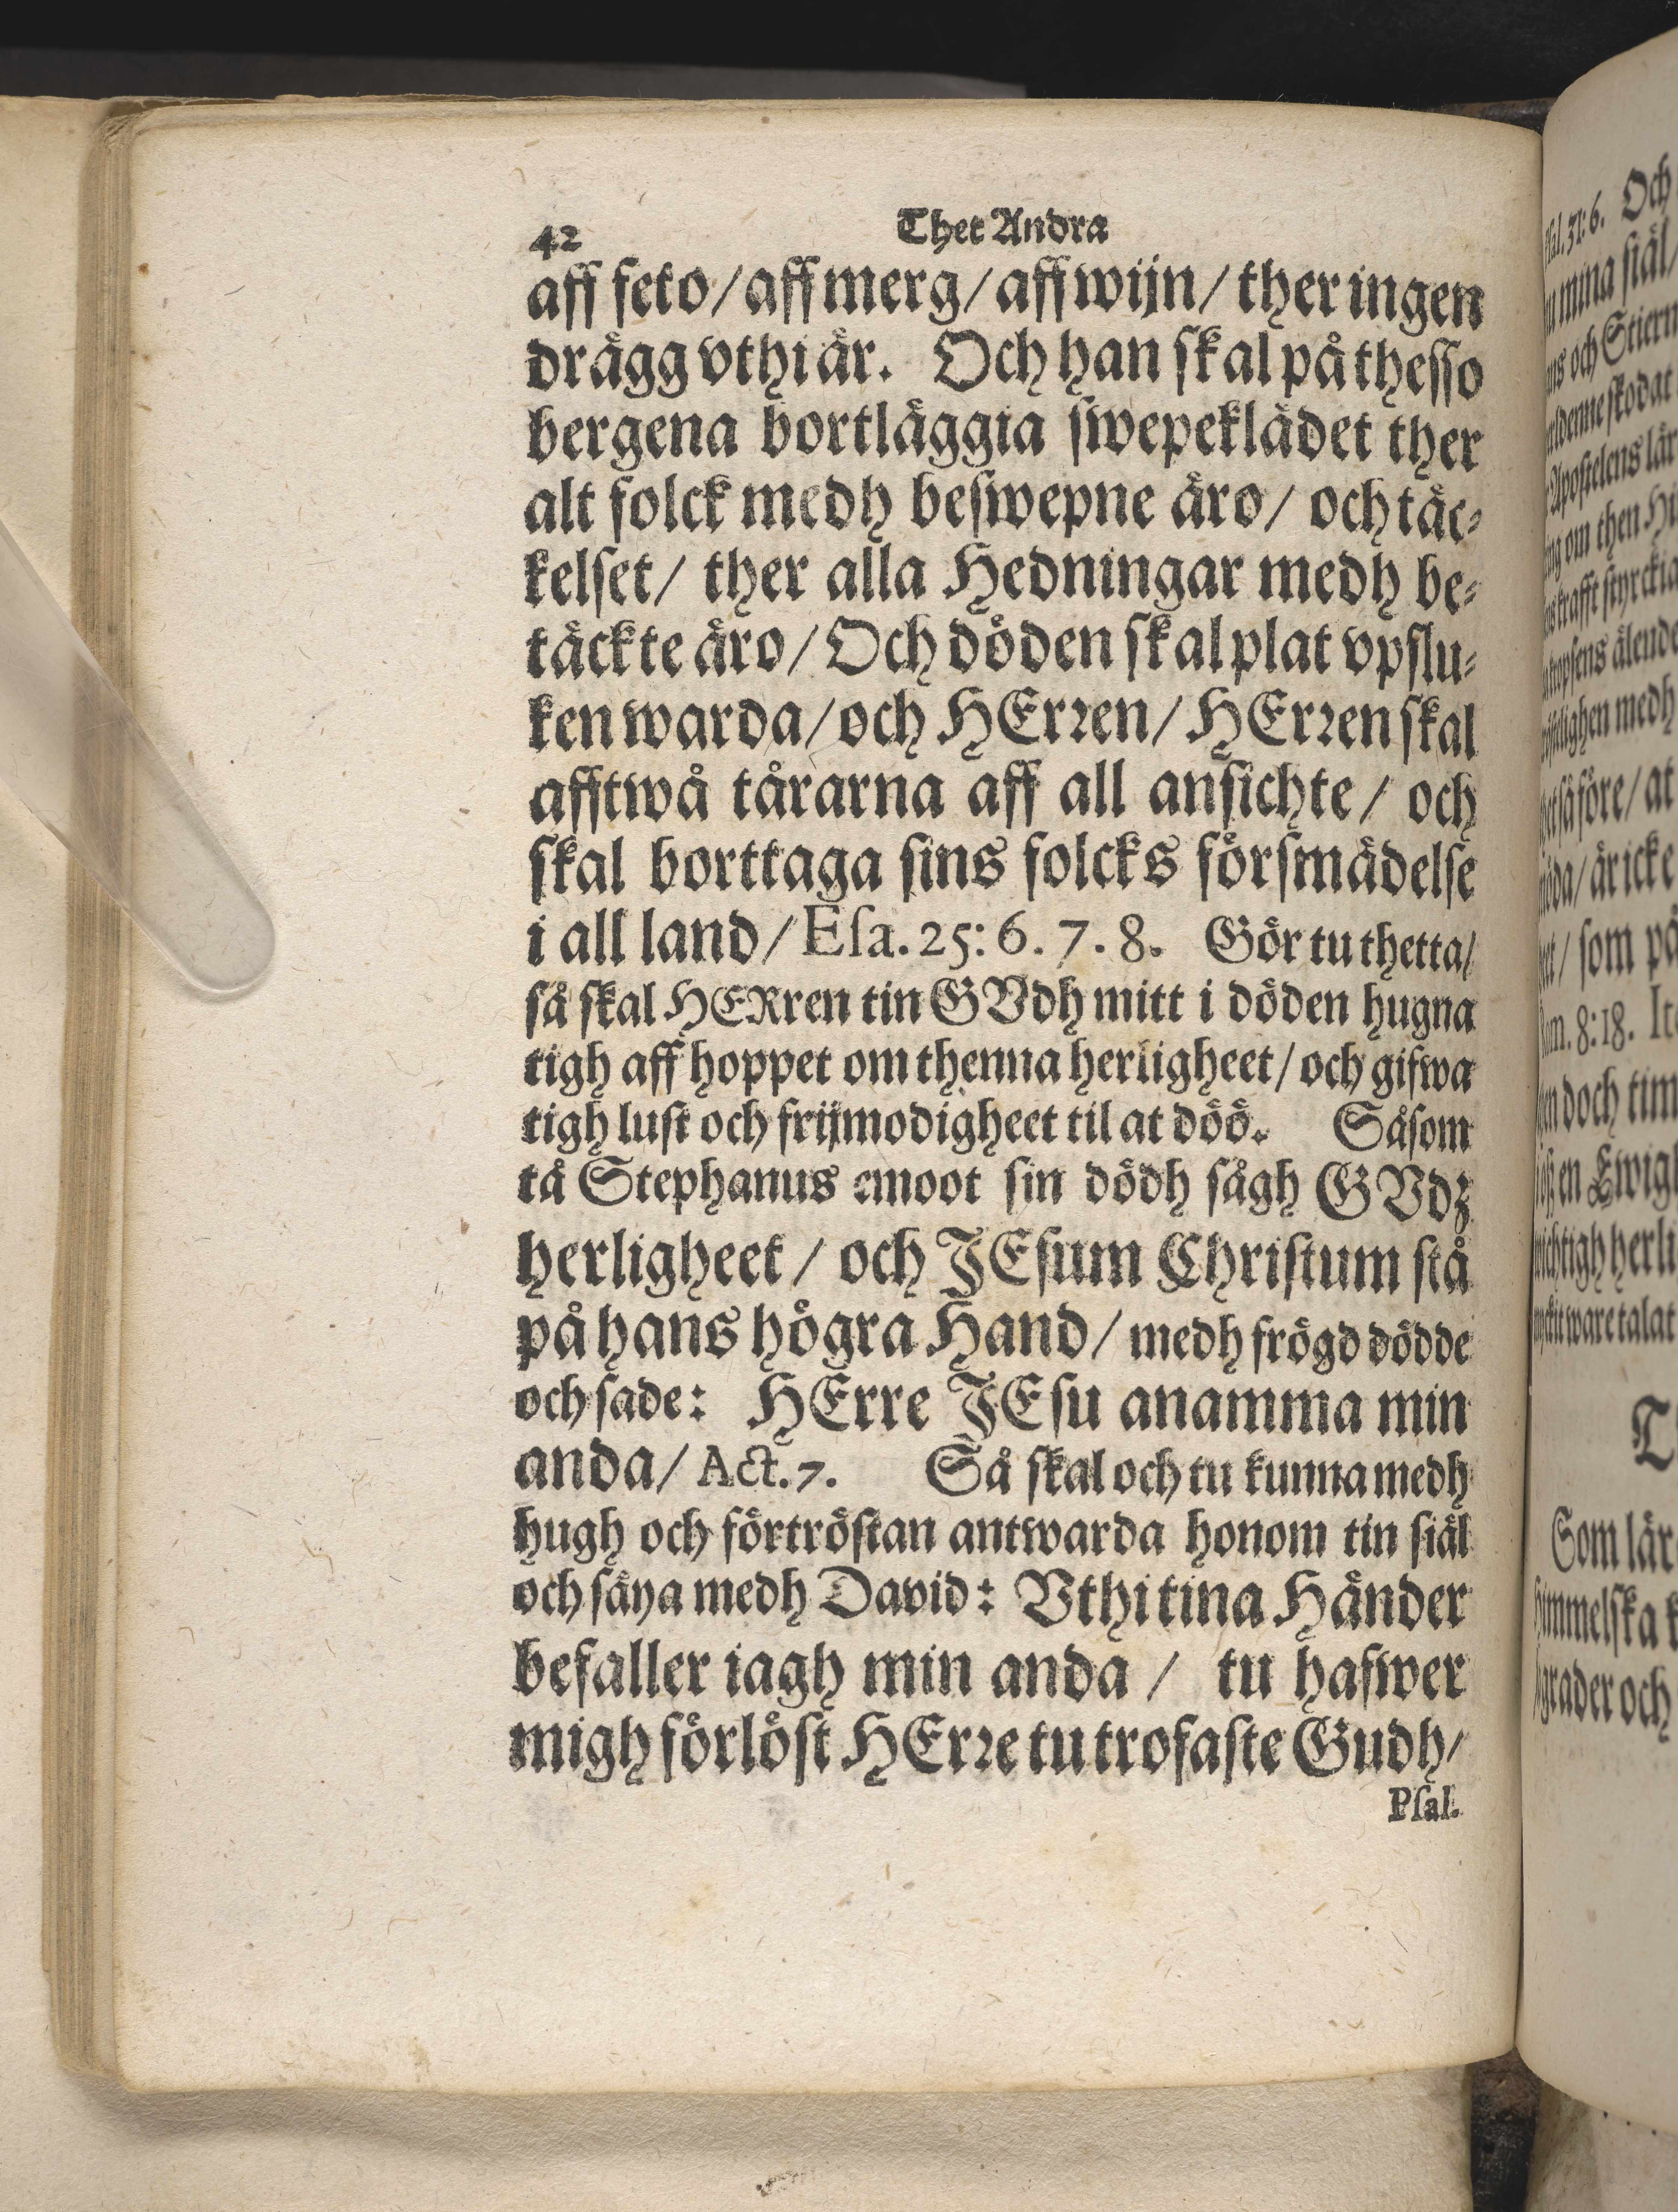 42 Thet Andra
aff feto/ aff merg/ aff wijn/ ther ingen
drägg vthi är. Och han skal på thesso
bergena bortläggia swepeklädet ther
alt folck medh beswepne äro/ och täc-
kelset/ ther alla Hedningar medh be-
täckte äro/ Och döden skal plat vpslu-
ken warda/ och HErren/ HErren skal
afftwå tårarna aff all ansichte/ och
skal borttaga sins folcks försmädelse
i all land/ Esa. 25: 6. 7. 8. Gör tu thetta/
så skal HERren tin GVdh mitt i döden hugna
tigh aff hoppet om thenna herligheet/ och gifwa
tigh lust och frijmodigheet til at döö. Såsom
tå Stephanus emoot sin dödh sågh GVdz
herligheet/ och JEsum Christum stå
på hans högra Hand/ medh frögd dödde
och sade: HErre JEsu anamma min
anda/ Act. 7. Så skal och tu kunna medh
hugh och förtröstan antwarda honom tin siäl
och säya medh David: Vthi tina Händer
befaller iagh min anda/ tu hafwer
migh förlöst HErre tu trofaste Gudh/
Psal.
31: 6. Och
mina siäl/
och Stiern
skodat
Apostelens lär
om then
krafft styrckia
älende
medh
före/ at
är icke
som på
8: 18.
doch tim
en Ewigh
herli
ware talat
Som lär
himmelska
grader och